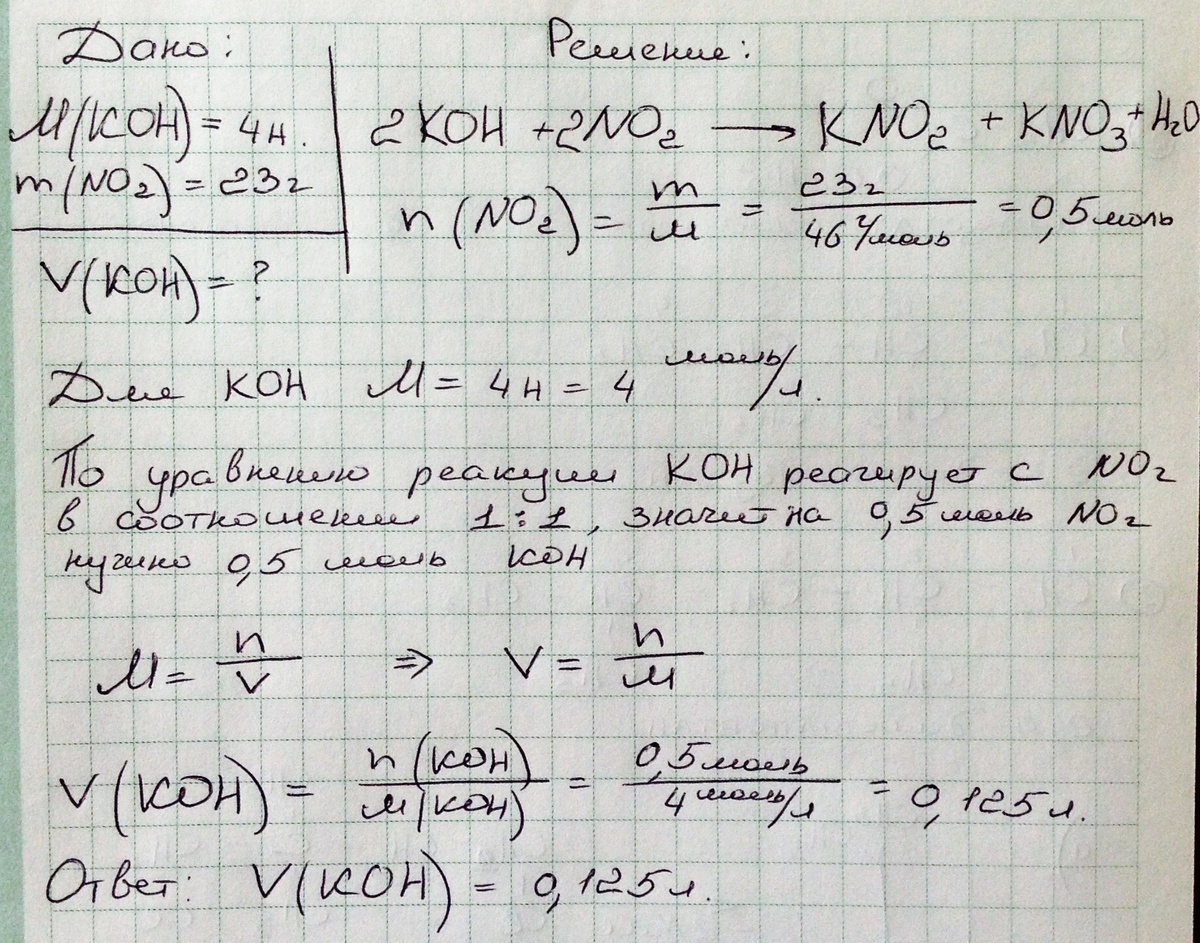 Дано:
M(KOH) = 4н.
m(NO₂) = 23г
V(KOH) = ?
Решение:
2KOH + 2NO₂ → KNO₂ + KNO₃ + H₂O
n(NO₂) = m/M = 23г / 46 г/моль = 0,5 моль
Для KOH M = 4н = 4 моль/л.
По уравнению реакции KOH реагирует с NO₂
в соотношении 1:1, значит на 0,5 моль NO₂
нужно 0,5 моль KOH
M = n/V ⇒ V = n/M
V(KOH) = n(KOH)/M(KOH) = 0,5 моль / 4 моль/л = 0,125 л.
Ответ: V(KOH) = 0,125 л.